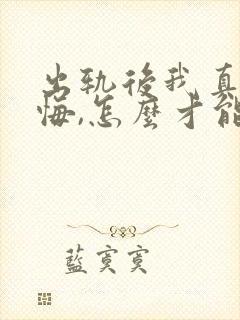 出軌後我真
悔,怎麼才能
藍寞寞